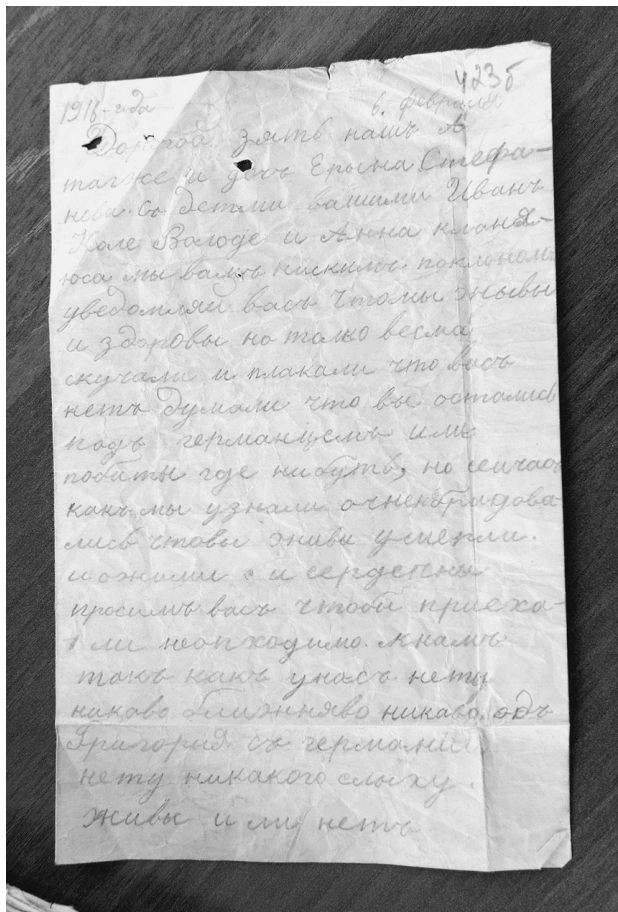 423б
1918-года 6. февраля
Дорогой зять нашъ А
также и дочь Ерына Стефа-
нова. Съ детми вашими Иванъ
Коле Володе и Анна кланя-
юса мы вамъ нискимъ поклономъ
уведомляй васъ что мы жывы
и здоровы но толко весма
скучали и плакали что васъ
нетъ думали что вы осталис
подъ германцемъ или
побиты где нибуть, но сейчасъ
какъ мы узнали очнеь брадова
лись чтовы живы умерли.
и ожили. и сердечны
просимъ васъ чтобы приеха-
ли неопходимо. мнамъ
такъ какъ унасъ неты
никаво ближняво никаво. одъ
Григория съ германии
нету никакого слыху.
живы и ли нетъ